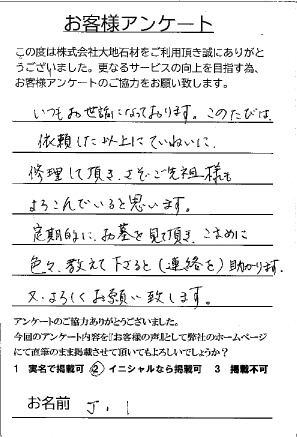 お客様アンケート
この度は株式会社大地石材をご利用頂き誠にありがと
うございました。更なるサービスの向上を目指す為、
お客様アンケートのご協力をお願い致します。
いつもお世話になっております。このたびは、
依頼した以上にていねいに、
修理して頂き、さぞご先祖様も
よろこんでいると思います。
定期的に、お墓を見て頂き、こまめに
色々、教えて下さると(連絡を)助かります。
又、よろしくお願い致します。
アンケートのご協力ありがとうございました。
今回のアンケート内容を『お客様の声』として弊社のホームページ
にて直筆のまま掲載させて頂いてもよろしいでしょうか？
1 実名で掲載可 ② イニシャルなら掲載可 3 掲載不可
お名前 J.I